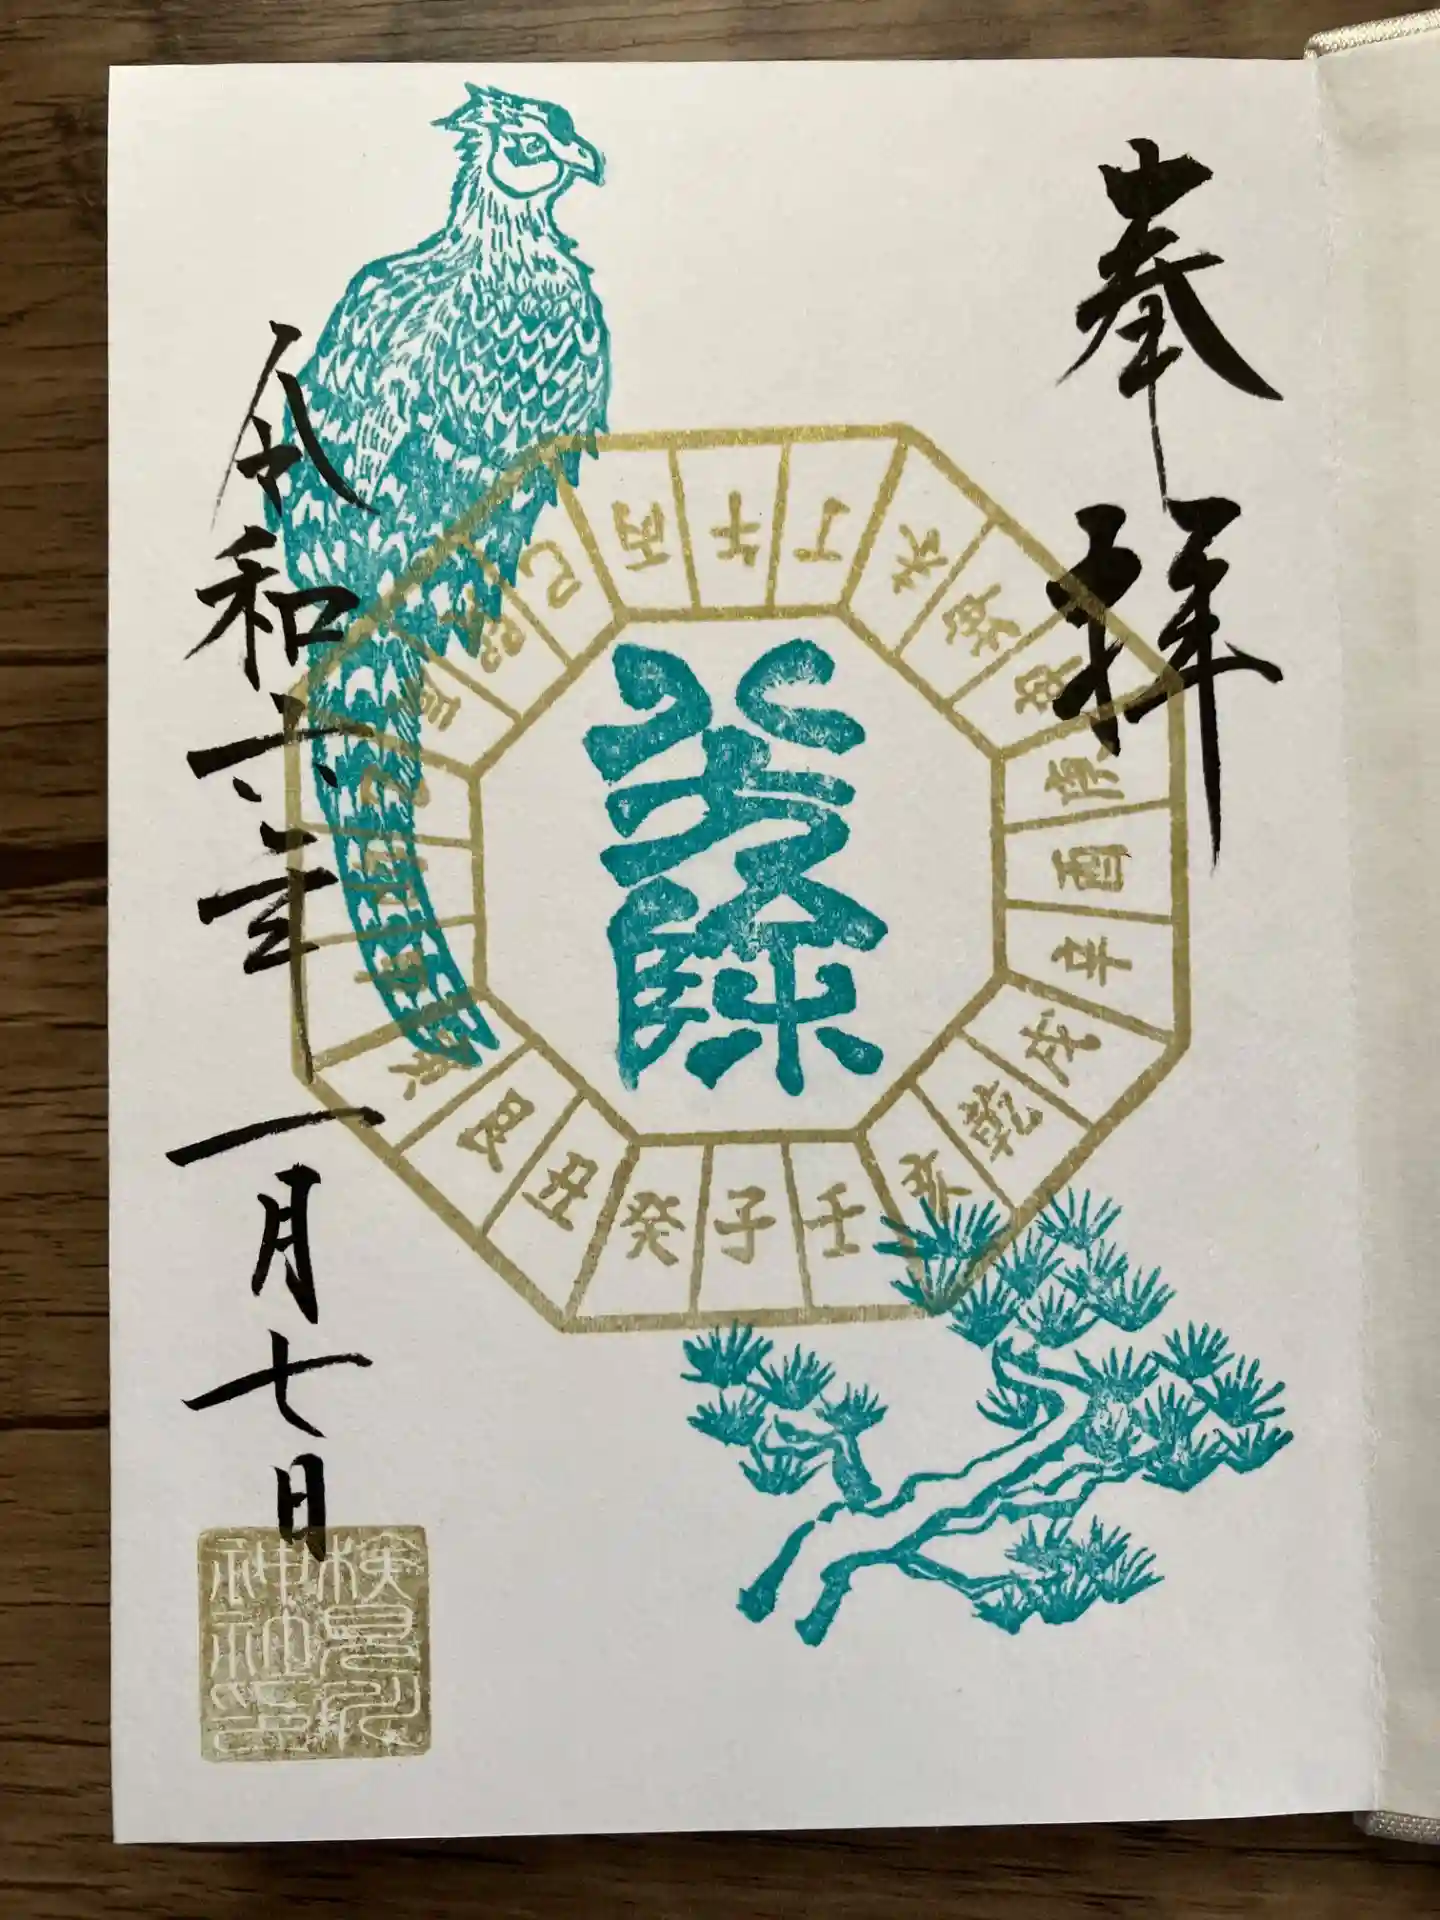 奉拝
八方除
丙
午
丁
未
坤
申
庚
酉
辛
戌
乾
亥
壬
子
癸
丑
艮
寅
甲
卯
乙
辰
巽
巳
令和六年一月七日
検見川
神社印